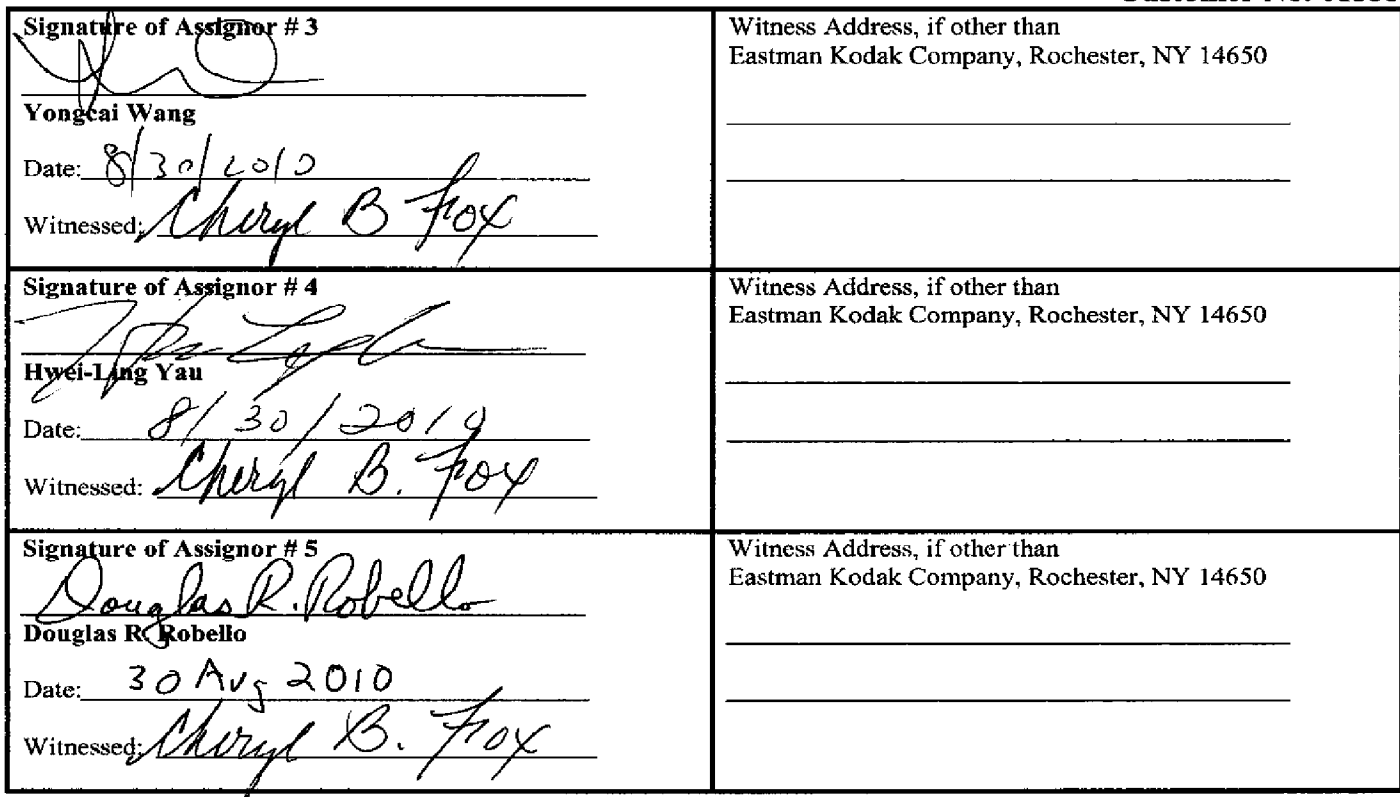 Signature of Assignor # 3
Yongcai Wang
Date: 8/30/2010
Witnessed: Cheryl B Fox
Witness Address, if other than
Eastman Kodak Company, Rochester, NY 14650
Signature of Assignor # 4
Hwei-Ling Yau
Date: 8/30/2010
Witnessed: Cheryl B. Fox
Witness Address, if other than
Eastman Kodak Company, Rochester, NY 14650
Signature of Assignor # 5
Douglas R. Robello
Douglas R. Robello
Date: 30 Aug 2010
Witnessed: Cheryl B. Fox
Witness Address, if other than
Eastman Kodak Company, Rochester, NY 14650